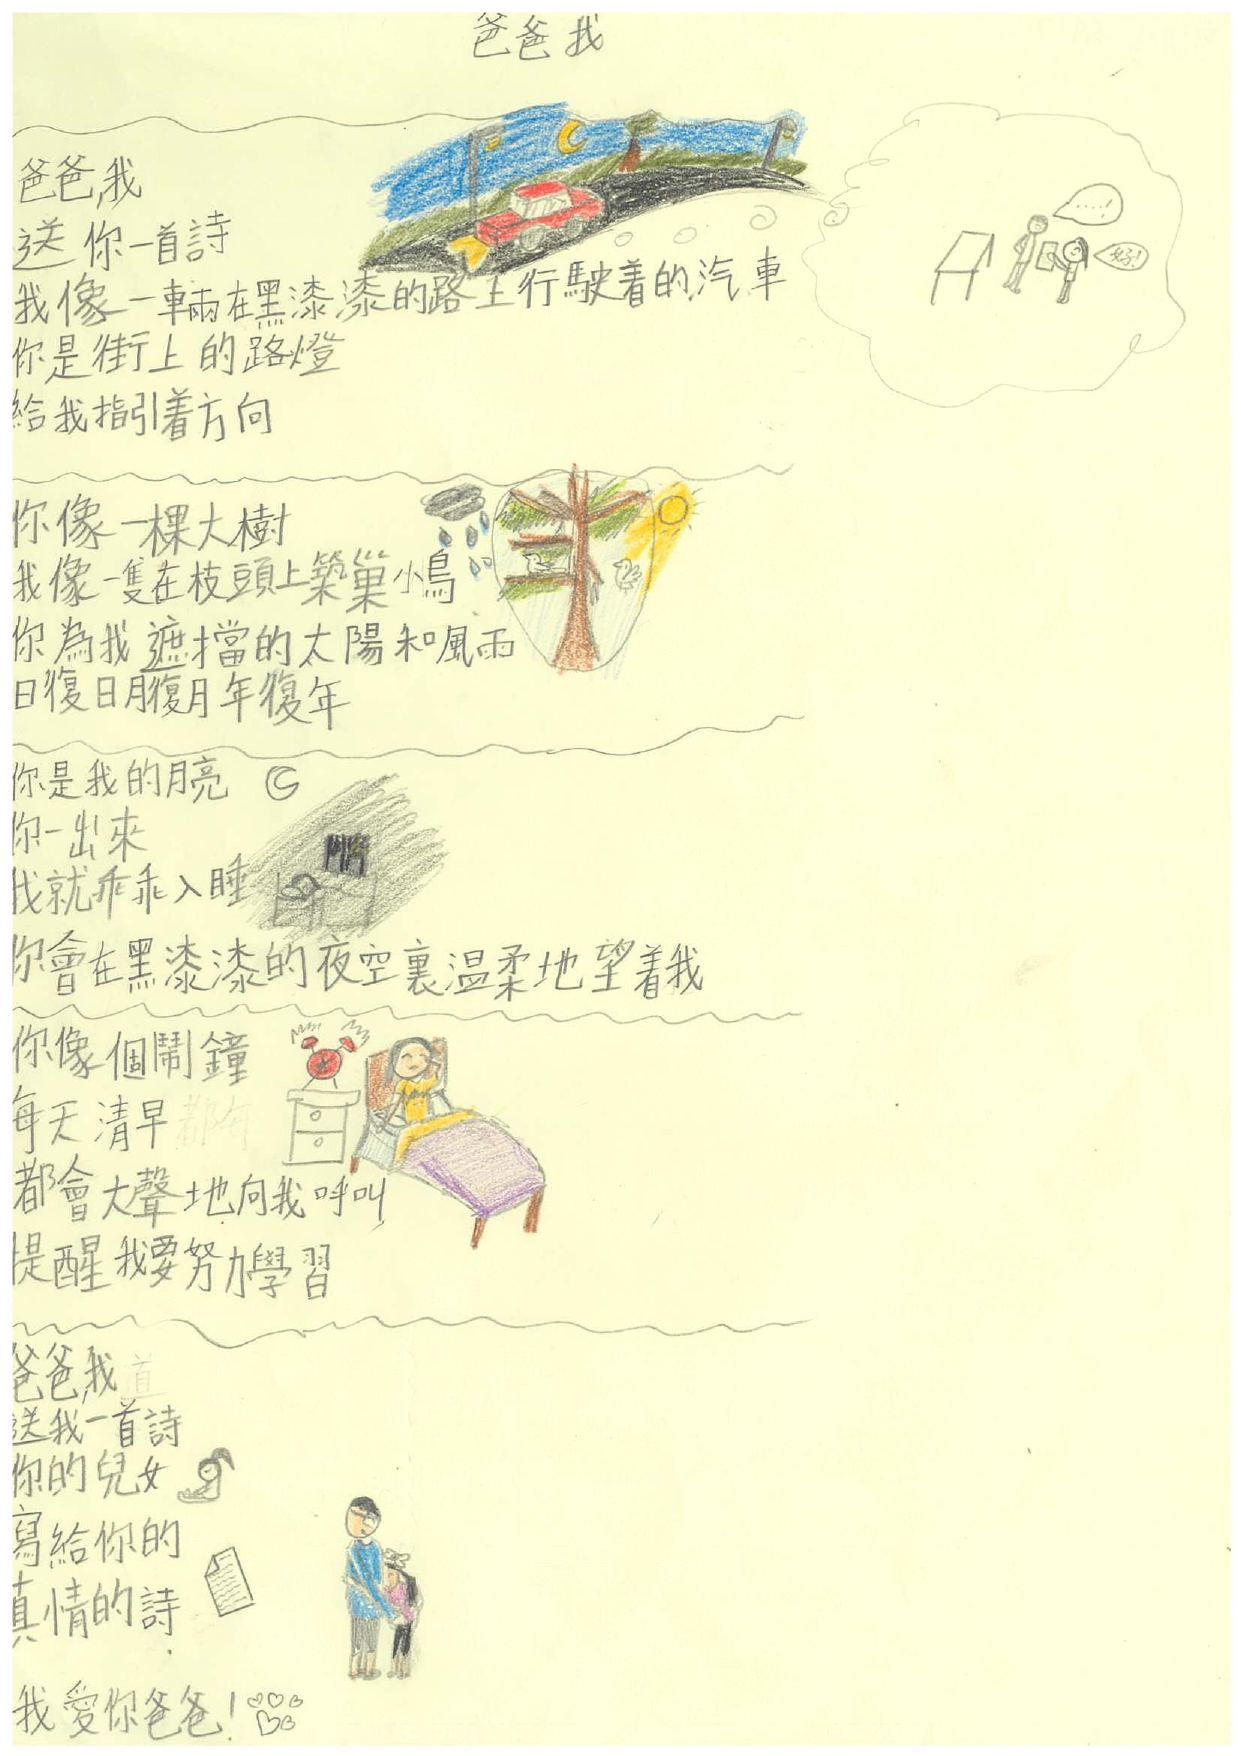 爸爸我
爸爸,我
送你一首詩
我像一輛在黑漆漆的路上行駛着的汽車
你是街上的路燈
給我指引着方向
.....!
好!
你像一棵大樹
我像一隻在枝頭上築巢小鳥
你為我遮擋的太陽和風雨
日復日月復月年復年
你是我的月亮
你一出來
我就乖乖入睡
你會在黑漆漆的夜空裏溫柔地望着我
你像個鬧鐘
每天清早
都會大聲地向我呼叫
提醒我要努力學習
爸爸,我
送我一首詩
你的兒女
寫給你的
真情的詩
我愛你爸爸!